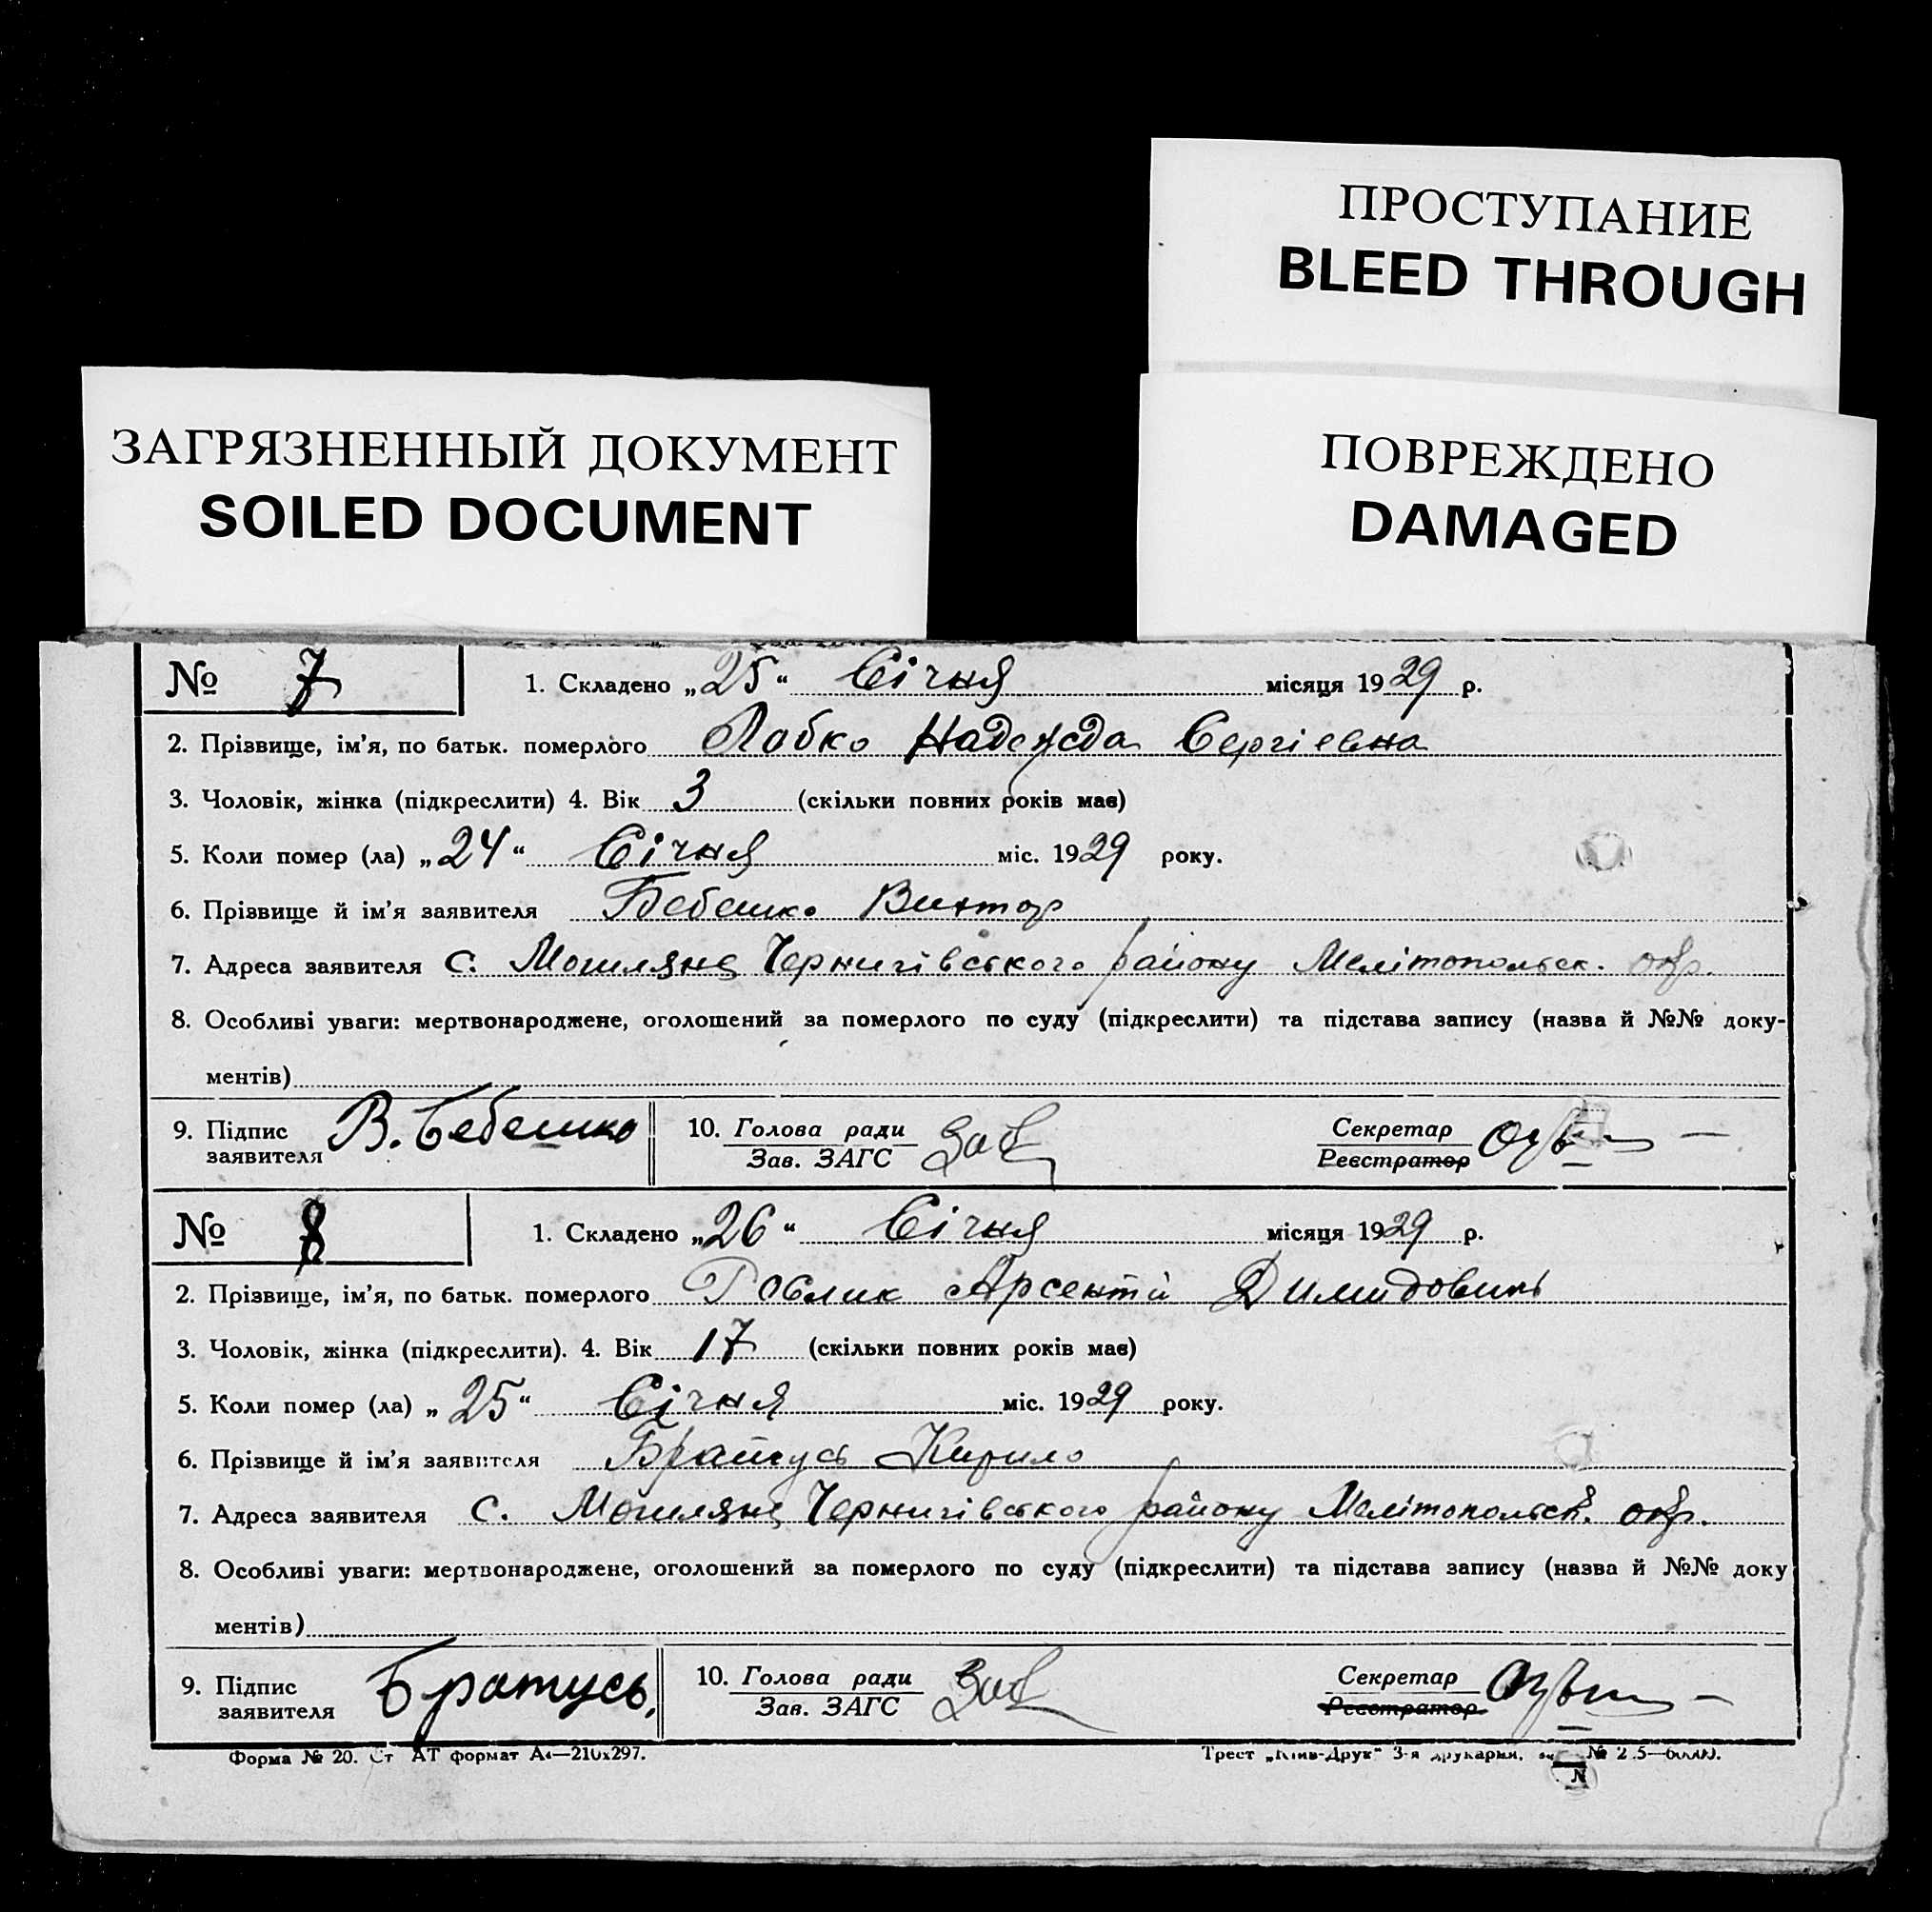 ПРОСТУПАНИЕ
BLEED THROUGH
ЗАГРЯЗНЕННЫЙ ДОКУМЕНТ
SOILED DOCUMENT
ПОВРЕЖДЕНО
DAMAGED
№ 7 1. Складено „25“ Січня місяця 1929 р.
2. Прізвище, ім'я, по батьк. померлого Лобко Надежда Сергіевна
3. Чоловік, жінка (підкреслити) 4. Вік 3 (скільки повних років має)
5. Коли помер (ла) „24“ Січня міс. 1929 року.
6. Прізвище й ім'я заявителя Бебешко Виктор
7. Адреса заявителя с. Могиляне Чернигівського району Мелітопольск. окр.
8. Особливі уваги: мертвонароджене, оголошений за померлого по суду (підкреслити) та підстава запису (назва й №№ доку-
ментів)
9. Підпис заявителя В. Бебешко 10. Голова ради Зав. ЗАГС Секретар Реєстратор
№ 8 1. Складено „26“ Січня місяця 1929 р.
2. Прізвище, ім'я, по батьк. померлого Арсентій Димидович
3. Чоловік, жінка (підкреслити). 4. Вік 17 (скільки повних років має)
5. Коли помер (ла) „25“ Січня міс. 1929 року.
6. Прізвище й ім'я заявителя Братусь Кирило
7. Адреса заявителя с. Могиляне Чернигівського району Мелітопольск. окр.
8. Особливі уваги: мертвонароджене, оголошений за померлого по суду (підкреслити) та підстава запису (назва й №№ доку
ментів)
9. Підпис заявителя Братусь. 10. Голова ради Зав. ЗАГС Секретар Реєстратор
Форма № 20. Ст АТ формат А4—210х297. Трест „Київ-Друк“ 3-я друкарня.